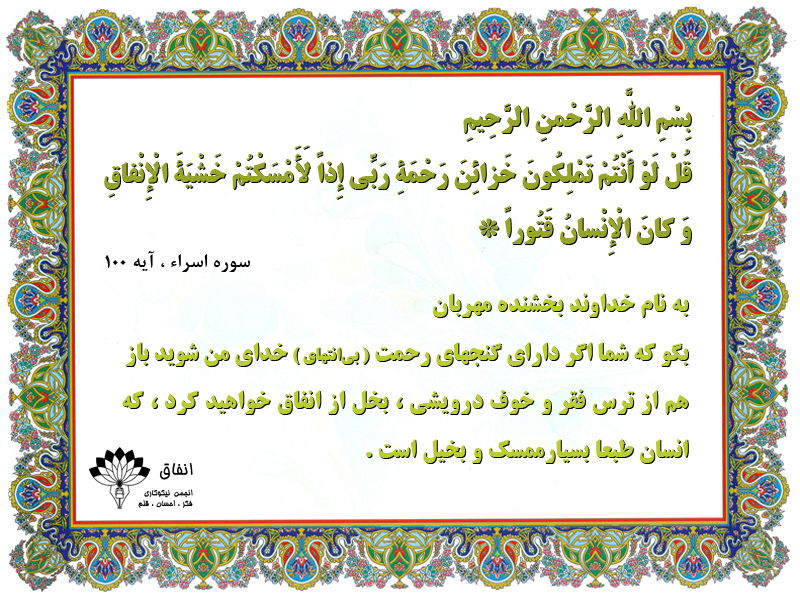 بِسْمِ اللَّهِ الرَّحْمنِ الرَّحِيمِ
قُلْ لَوْ أَنْتُمْ تَمْلِكُونَ خَزائِنَ رَحْمَةِ رَبِّی إِذاً لَأَمْسَكْتُمْ خَشْيَةَ الْإِنْفاقِ
وَ كانَ الْإِنْسانُ قَتُوراً *
سوره اسراء ، آیه ۱۰۰
به نام خداوند بخشنده مهربان
بگو که شما اگر دارای گنجهای رحمت ( بی‌انتهای ) خدای من شوید باز
هم از ترس فقر و خوف درویشی ، بخل از انفاق خواهید کرد ، که
انسان طبعا بسیارممسک و بخیل است .
انفاق
انجمن نیکوکاری
فکر ، احسان ، قلم